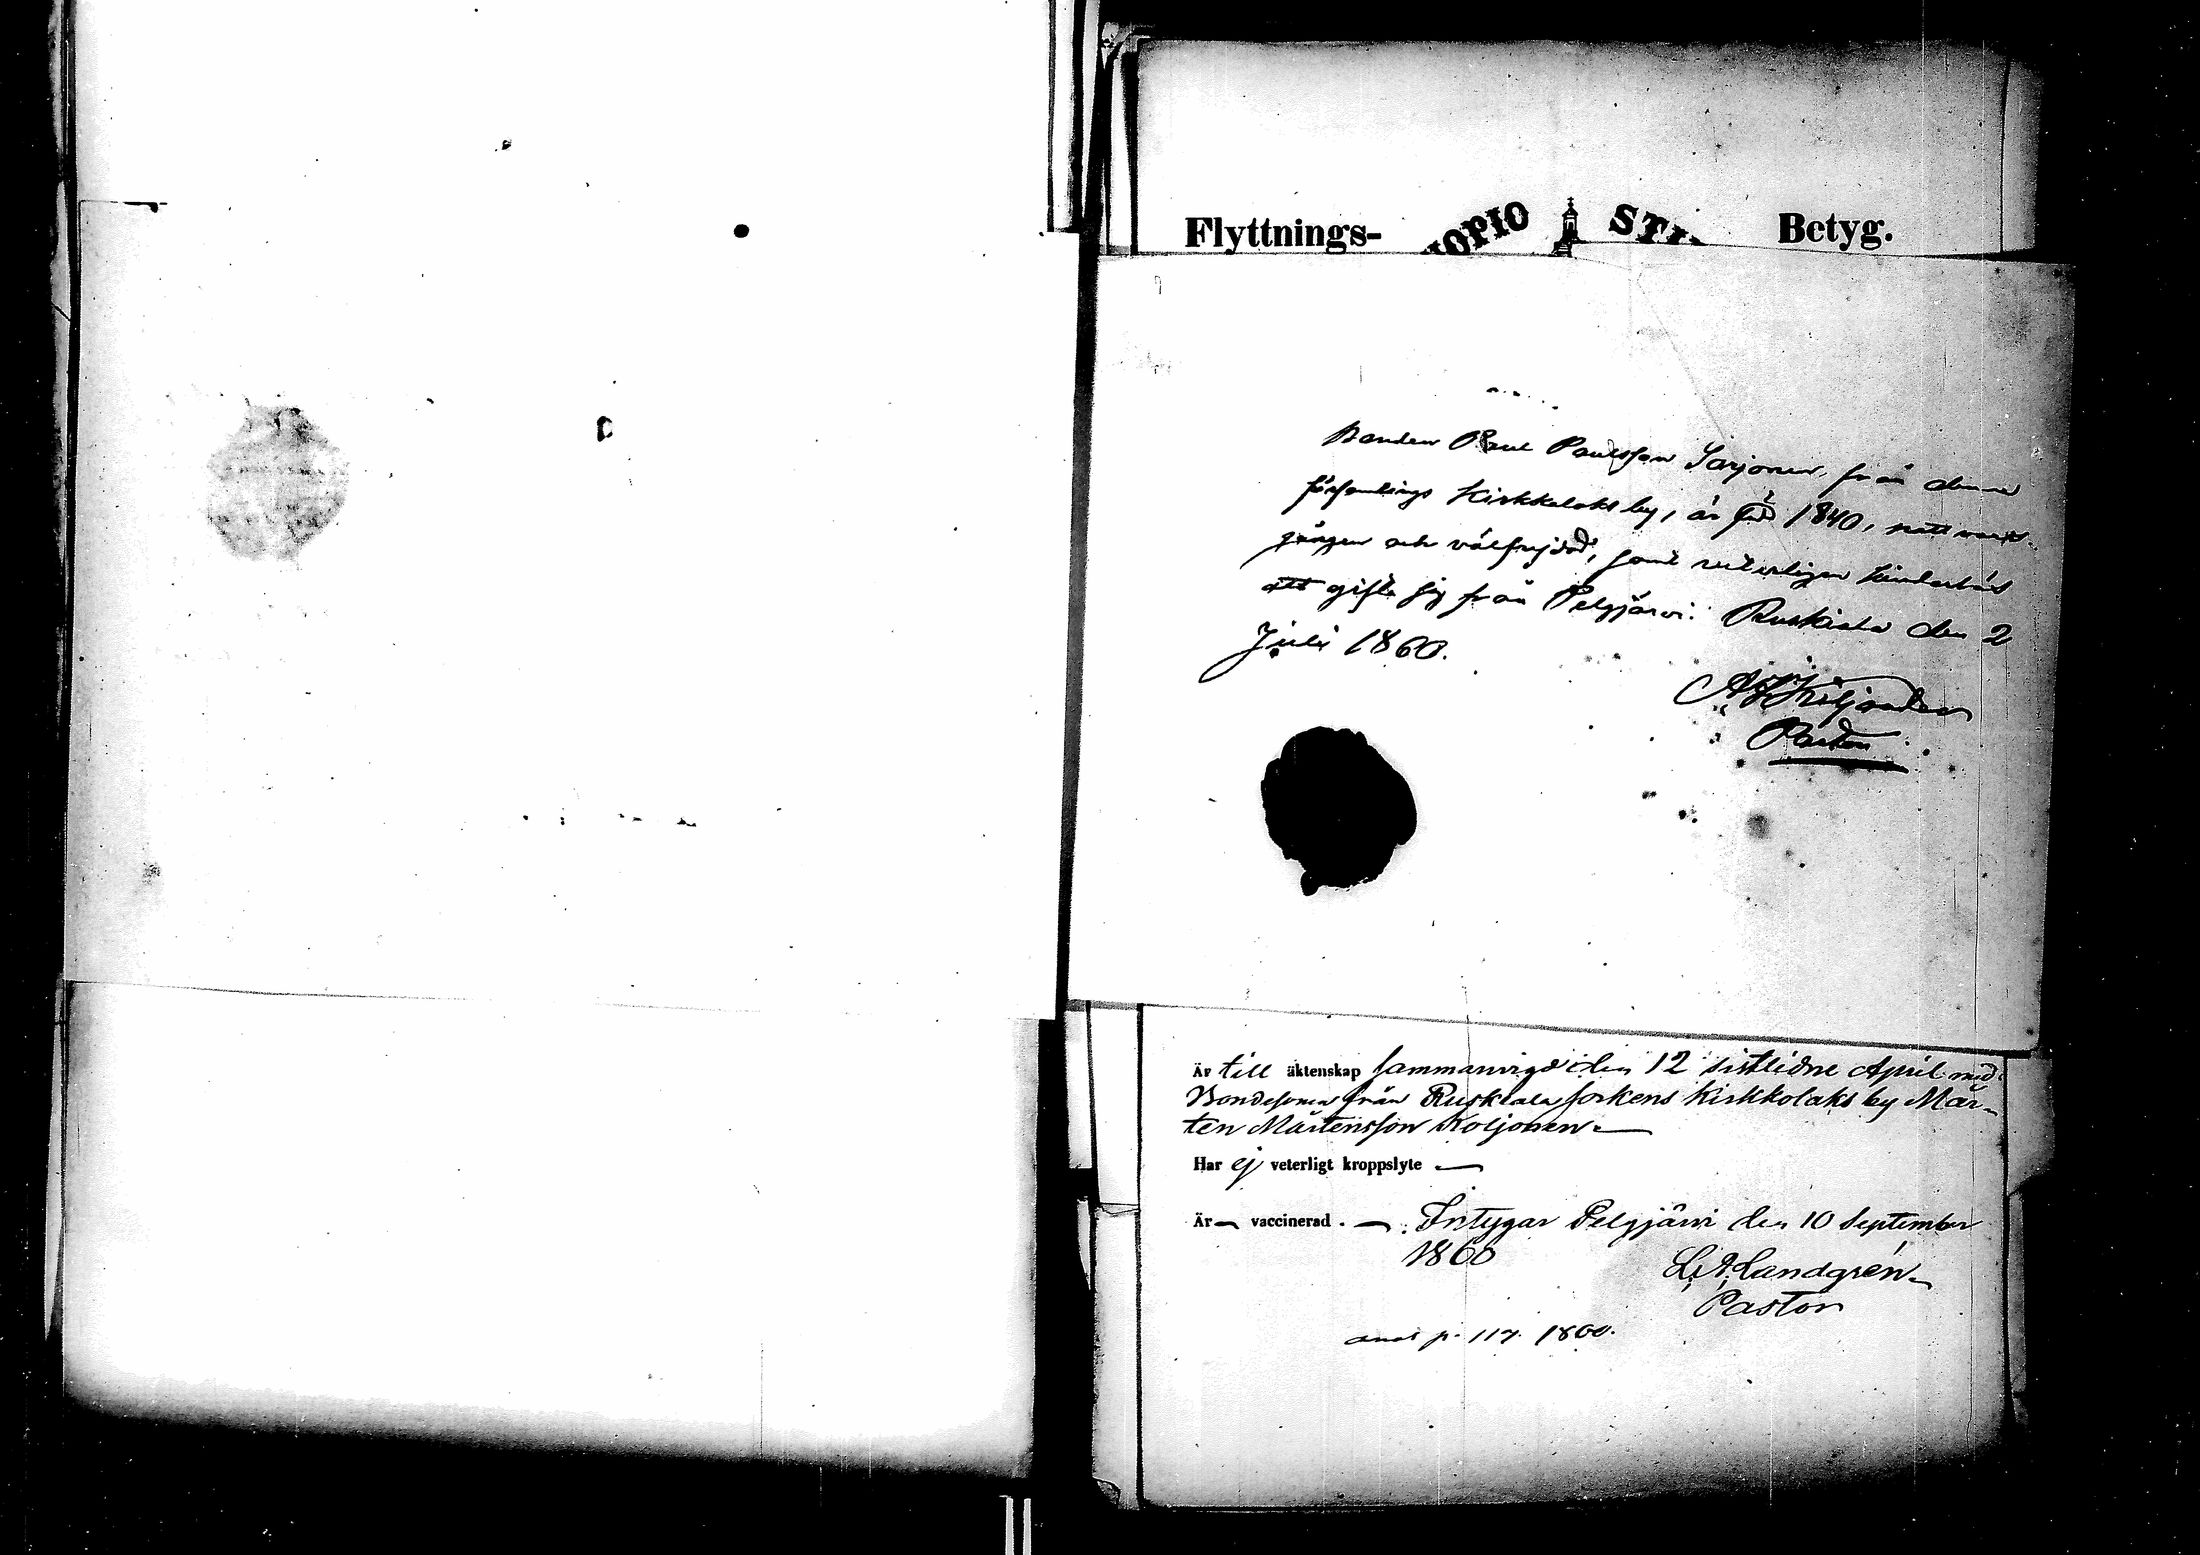 Flyttnings- UOPIO STI Betyg.
Bonden Paul Paulsson Sarjonen, från denna
församlings Kirkkolaks by, är född 1840, nattvards-
gången och välfrejdad, samt veterligen hinderlös
att gifta sig från Pelgjärvi. Ruskiala den 2
Juli 1860.
Pastor
Är till äktenskap sammanvigd den 12 sistlidne April med
Bondesonen från Ruskiala sockens Kirkkolaks by Mår-
ten Mårtensson Koljonen.
Har ej veterligt kroppslyte —
Är — vaccinerad. — Intygar Pelgjärvi den 10 September
1860
L. A. Landgrén
Pastor
anot p. 117. 1860.